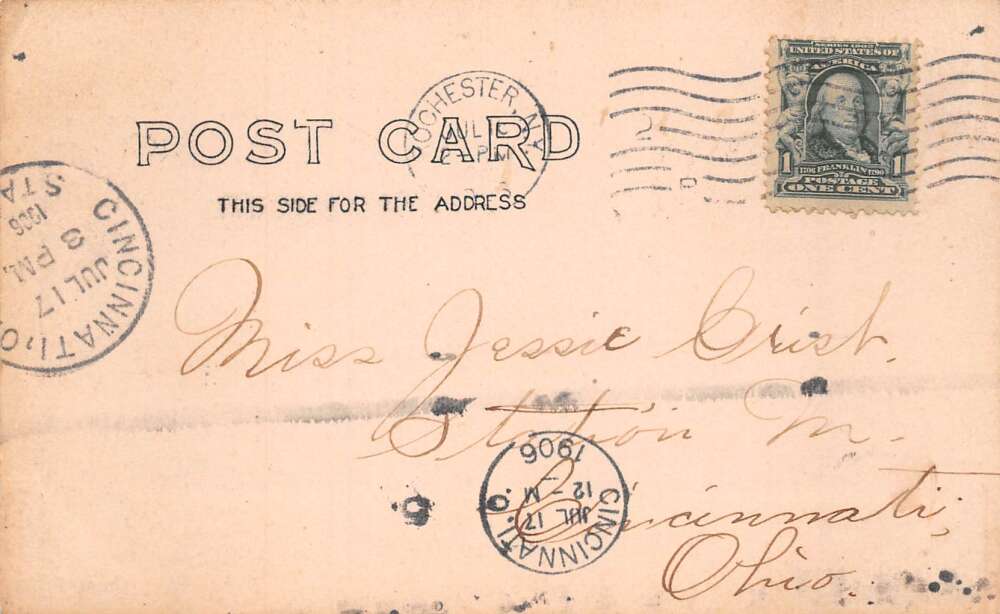 SERIES 1902
UNITED STATES OF
AMERICA
1 1706 FRANKLIN 1790 1
POSTAGE
ONE CENT
ROCHESTER, N.Y.
JUL
PM
POST CARD
THIS SIDE FOR THE ADDRESS
CINCINNATI, O.
JUL 17
8 PM
1906
STA
Miss Jessie Crist.
Station M.
Cincinnati,
Ohio.
CINCINNATI, O.
JUL 17
12 - M
1906